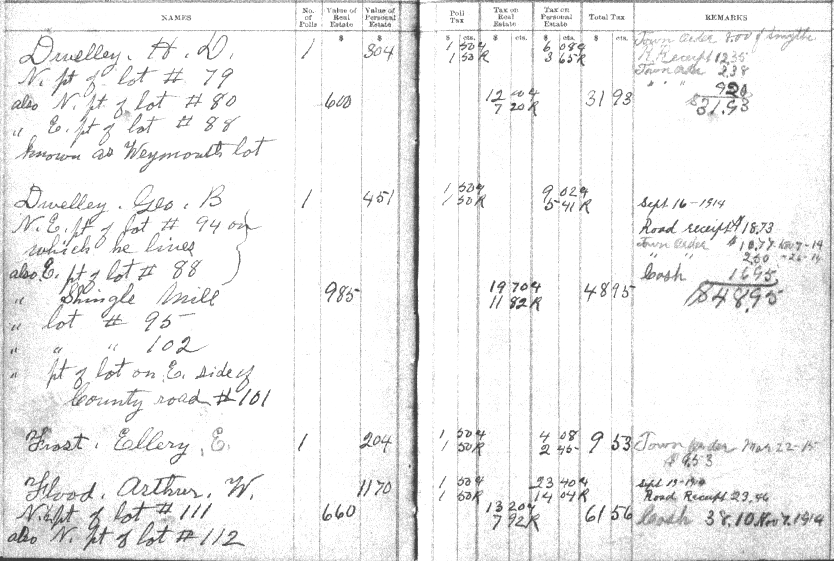 NAMES No. of Polls Value of Real Estate Value of Personal Estate Poll Tax Tax on Real Estate Tax on Personal Estate Total Tax REMARKS
$ $ $ cts. $ cts. $ cts. $ cts.
Dwelley. H. D. 1 304 1 50 6 08 Town Order 8.00 Smythe
1 50 R 3 65 R R Receipt 12.35
N. pt of lot # 79 Town Order 2.38
also N. pt of lot # 80 600 12 00 31 93 " " " 9.20
7 20 R $31.93
" E. pt of lot # 88
known as Weymouth lot
Dwelley. Geo. B 1 451 1 50 9 02 Sept 16-1914
1 50 R 5 41 R
N. E. pt of lot # 94 on Road receipt $18.73
which he lives Town Order $10.77 Nov 7-14
also E. pt of lot # 88 " " 2.50 -26-14
Cash 16 95
" Shingle Mill 985 19 70 48 95 $48.95
11 82 R
" lot # 95
" " " 102
" pt of lot on E. side of
County road # 101
Frost. Ellery. E. 1 204 1 50 4 08 9 53 Town Order Mar 22-15
1 50 R 2 45 $9.53
Flood. Arthur. W. 1170 1 50 23 40 Sept 19-1914
1 50 R 14 04 R Road Receipt 23.46
N. pt of lot # 111 660 13 20 61 56 Cash 38.10 Nov 7. 1914
7 92 R
also N. pt of lot # 112